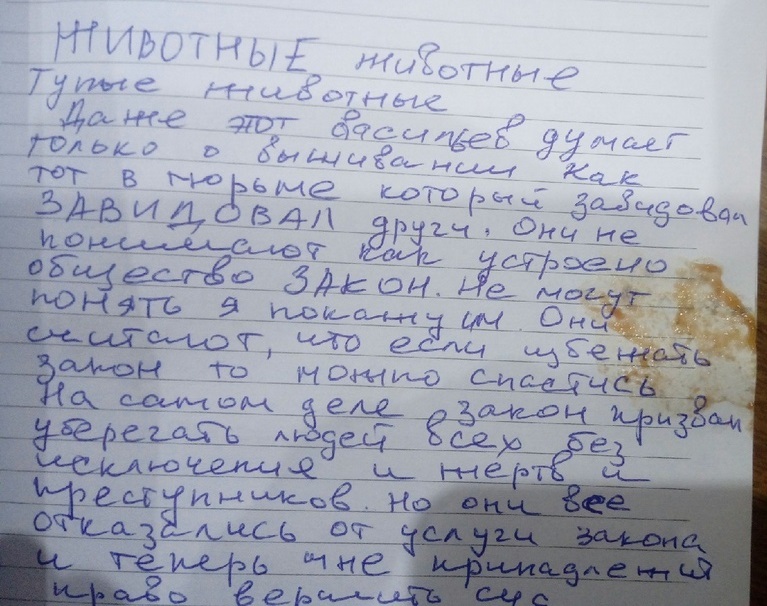 ЖИВОТНЫЕ животные
Тупые животные
Даже этот васильев думает
только о выживании как
тот в тюрьме который завидовал
ЗАВИДОВАЛ другу. Они не
понимают как устроено
общество ЗАКОН. Не могут
понять я покажу им. Они
считают, что если избежать
закон то можно спастись
На самом деле закон призван
уберегать людей всех без
исключения и жертв и
преступников. Но они все
отказались от услуги закона
и теперь мне принадлежит
право вершить суд